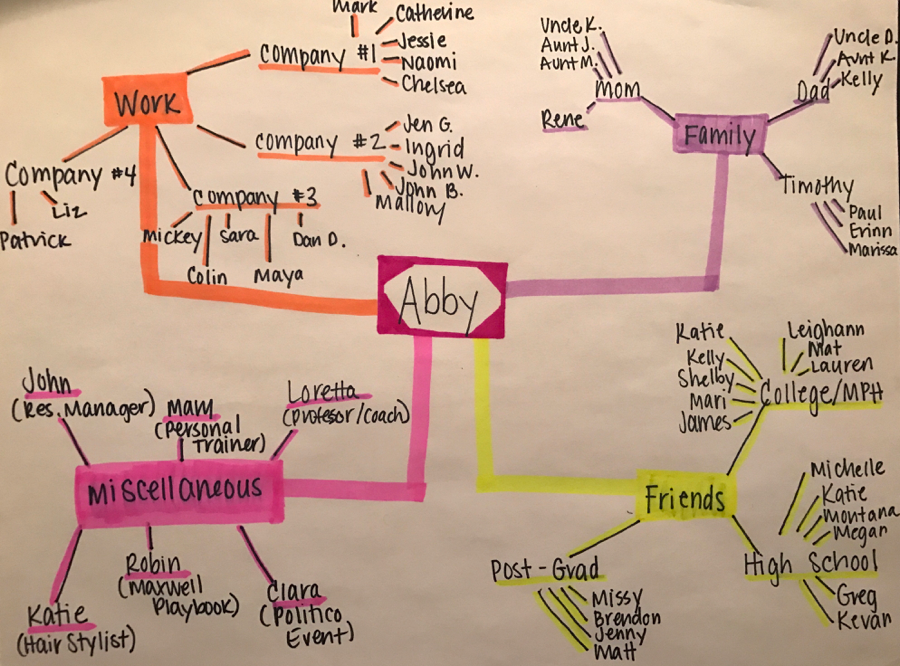 Mark
Catherine
Jessie
Naomi
Chelsea
Company #1
Work
Company #2
Jen G.
Ingrid
John W.
John B.
Mallory
Company #4
Liz
Patrick
Company #3
Mickey
Sara
Dan D.
Colin
Maya
Uncle K.
Aunt J.
Aunt M.
Mom
Rene
Uncle D.
Aunt K.
Kelly
Dad
Family
Timothy
Paul
Erinn
Marissa
Abby
John
(Res. Manager)
Mary
(Personal
Trainer)
Loretta
(Profesor/Coach)
Miscellaneous
Robin
(Maxwell
Playbook)
Katie
(Hair Stylist)
Clara
(Politico
Event)
Katie
Kelly
Shelby
Mari
James
Leighann
Mat
Lauren
College/MPH
Friends
Michelle
Katie
Montana
Megan
High School
Greg
Kevan
Post-Grad
Missy
Brendon
Jenny
Matt